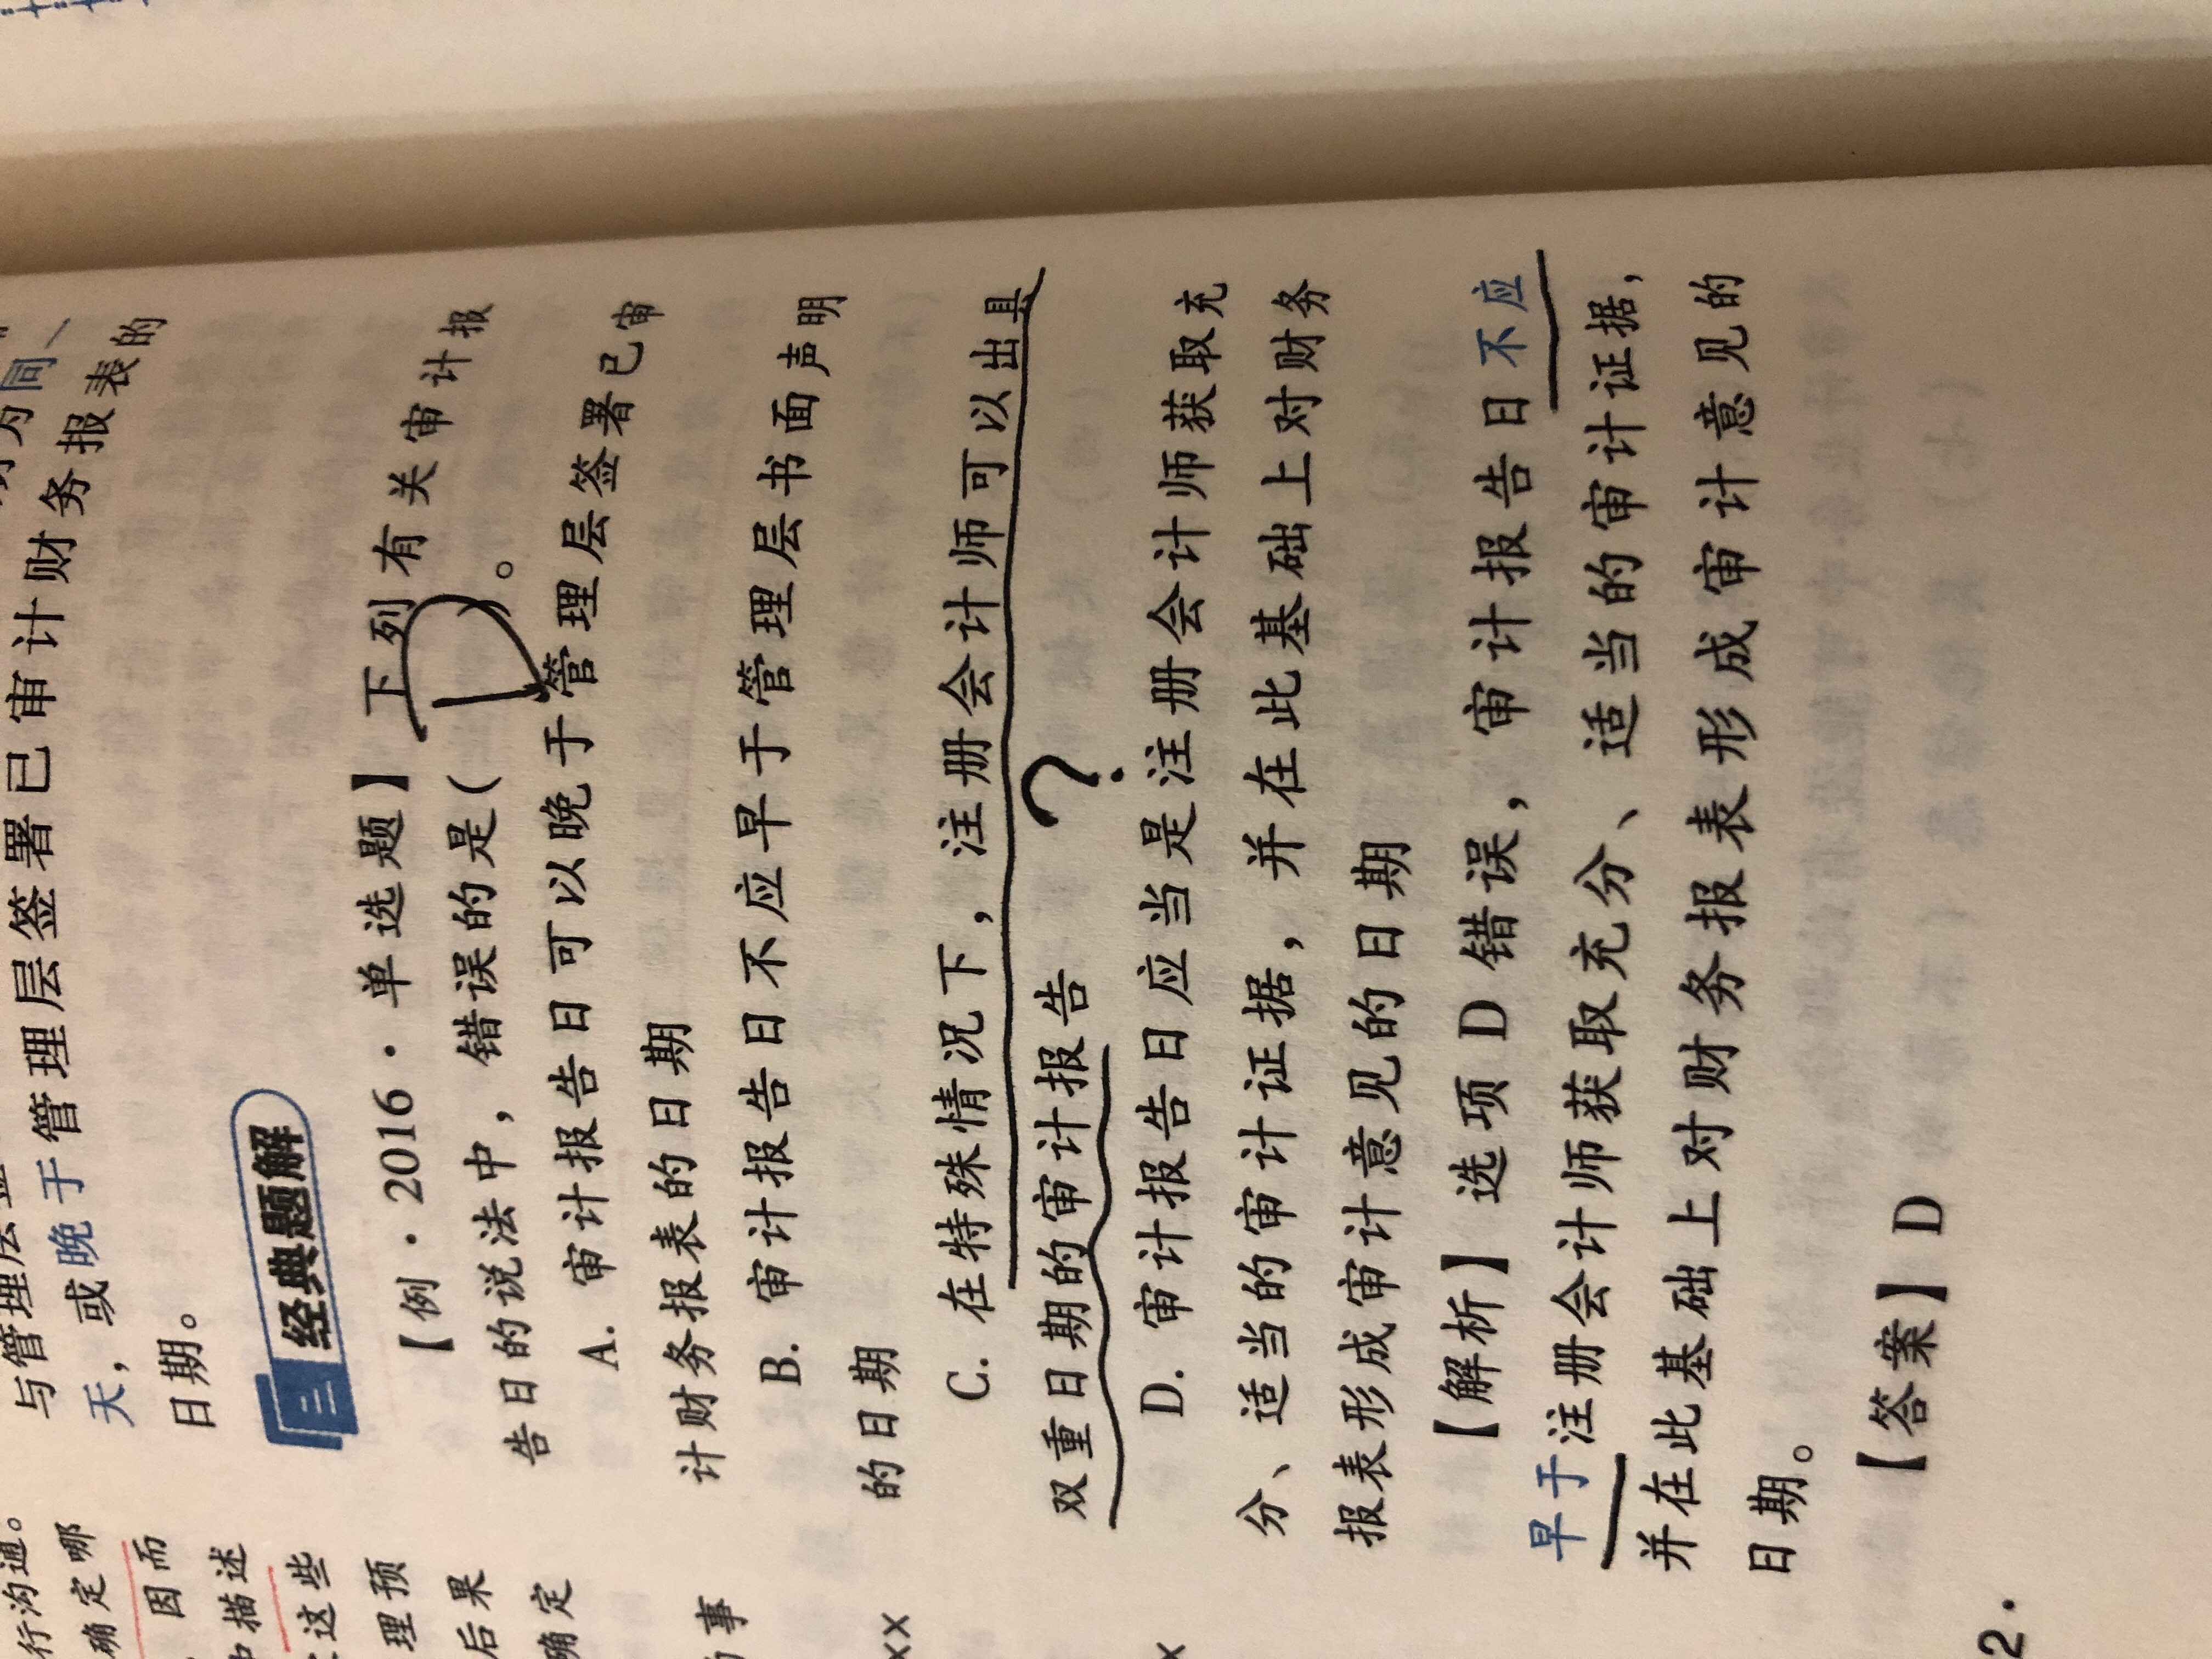 与管理层签署已审计财务报表的
天，或晚于管理层签署已审计财务报表的
日期。
经典题解
【例·2016·单选题】下列有关审计报
告日的说法中，错误的是( D )。
A. 审计报告日可以晚于管理层签署已审
计财务报表的日期
B. 审计报告日不应早于管理层书面声明
的日期
C. 在特殊情况下，注册会计师可以出具
双重日期的审计报告
?
D. 审计报告日应当是注册会计师获取充
分、适当的审计证据，并在此基础上对财务
报表形成审计意见的日期
【解析】选项 D 错误，审计报告日不应
早于注册会计师获取充分、适当的审计证据，
并在此基础上对财务报表形成审计意见的
日期。
【答案】D
行沟通。
确定哪
因而
中描述
这些
理预
后果
确定
事
××
×
2.